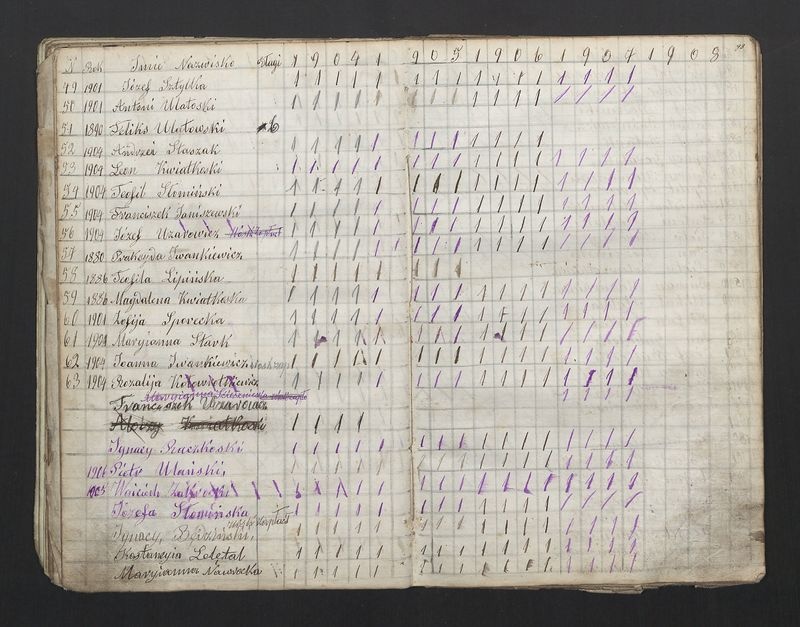 Rok Imię Nazwisko 1 9 0 4 1 9 0 5 1 9 0 6 1 9 0 7 1 9 0 8
49 1901 Józef Sztylka 1 1 1 1 1 1 1 1 1 1 1 1 1 1 1 1
50 1901 Antoni Ulatoski 1 1 1 1 1 1 1 1 1 1 1 1 1 1 1 1
51 1890 Feliks Ulatowski
52 1904 Andrzei Staszak 1 1 1 1 1 1 1 1 1 1 1 1
53 1904 Leon Kwiatkoski 1 1 1 1 1 1 1 1 1 1 1 1 1 1 1 1
54 1904 Teofil Słomiński 1 1 1 1 1 1 1 1 1 1 1 1 1 1 1 1
55 1904 Franciszek Janiszewski 1 1 1 1 1 1 1 1 1 1 1 1 1 1 1 1
56 1904 Józef Uzarowicz 1 1 1 1 1 1 1 1 1 1 1 1 1 1 1 1
57 1880 Iwankiewicz 1 1 1 1 1 1 1 1 1 1 1 1 1 1 1 1
58 1886 Teofila Lipińska 1 1 1 1 1 1 1 1
59 1886 Magdalena Kwiatkoska 1 1 1 1 1 1 1 1 1 1 1 1 1 1 1 1
60 1901 Zofija Sporecka 1 1 1 1 1 1 1 1 1 1 1 1 1 1 1 1
61 1904 Maryianna Stark 1 1 1 1 1 1 1 1 1 1 1 1 1 1 1 1
62 1904 Joanna Iwankiewicz 1 1 1 1 1 1 1 1 1 1 1 1 1 1 1 1
63 1904 Rozalija 1 1 1 1 1 1 1 1 1 1 1 1 1 1 1 1
Maryianna
Franciszek Uzarowicz 1 1 1 1
Aloizy Kwiatkoski 1 1 1 1
Ignacy Raczkoski 1 1 1 1 1 1 1 1 1 1 1 1 1 1 1 1
1906 Piotr Ulański 1 1 1 1 1 1 1 1 1 1 1 1 1 1 1 1
1905 Woiciech
Józefa Słomińska 1 1 1 1 1 1 1 1 1 1 1 1 1 1 1 1
Ignacy 1 1 1 1 1 1 1 1 1 1 1 1 1 1 1 1
Kostancyia Leletal 1 1 1 1 1 1 1 1 1 1 1 1 1 1 1 1
Maryianna Nawrocka 1 1 1 1 1 1 1 1 1 1 1 1 1 1 1 1